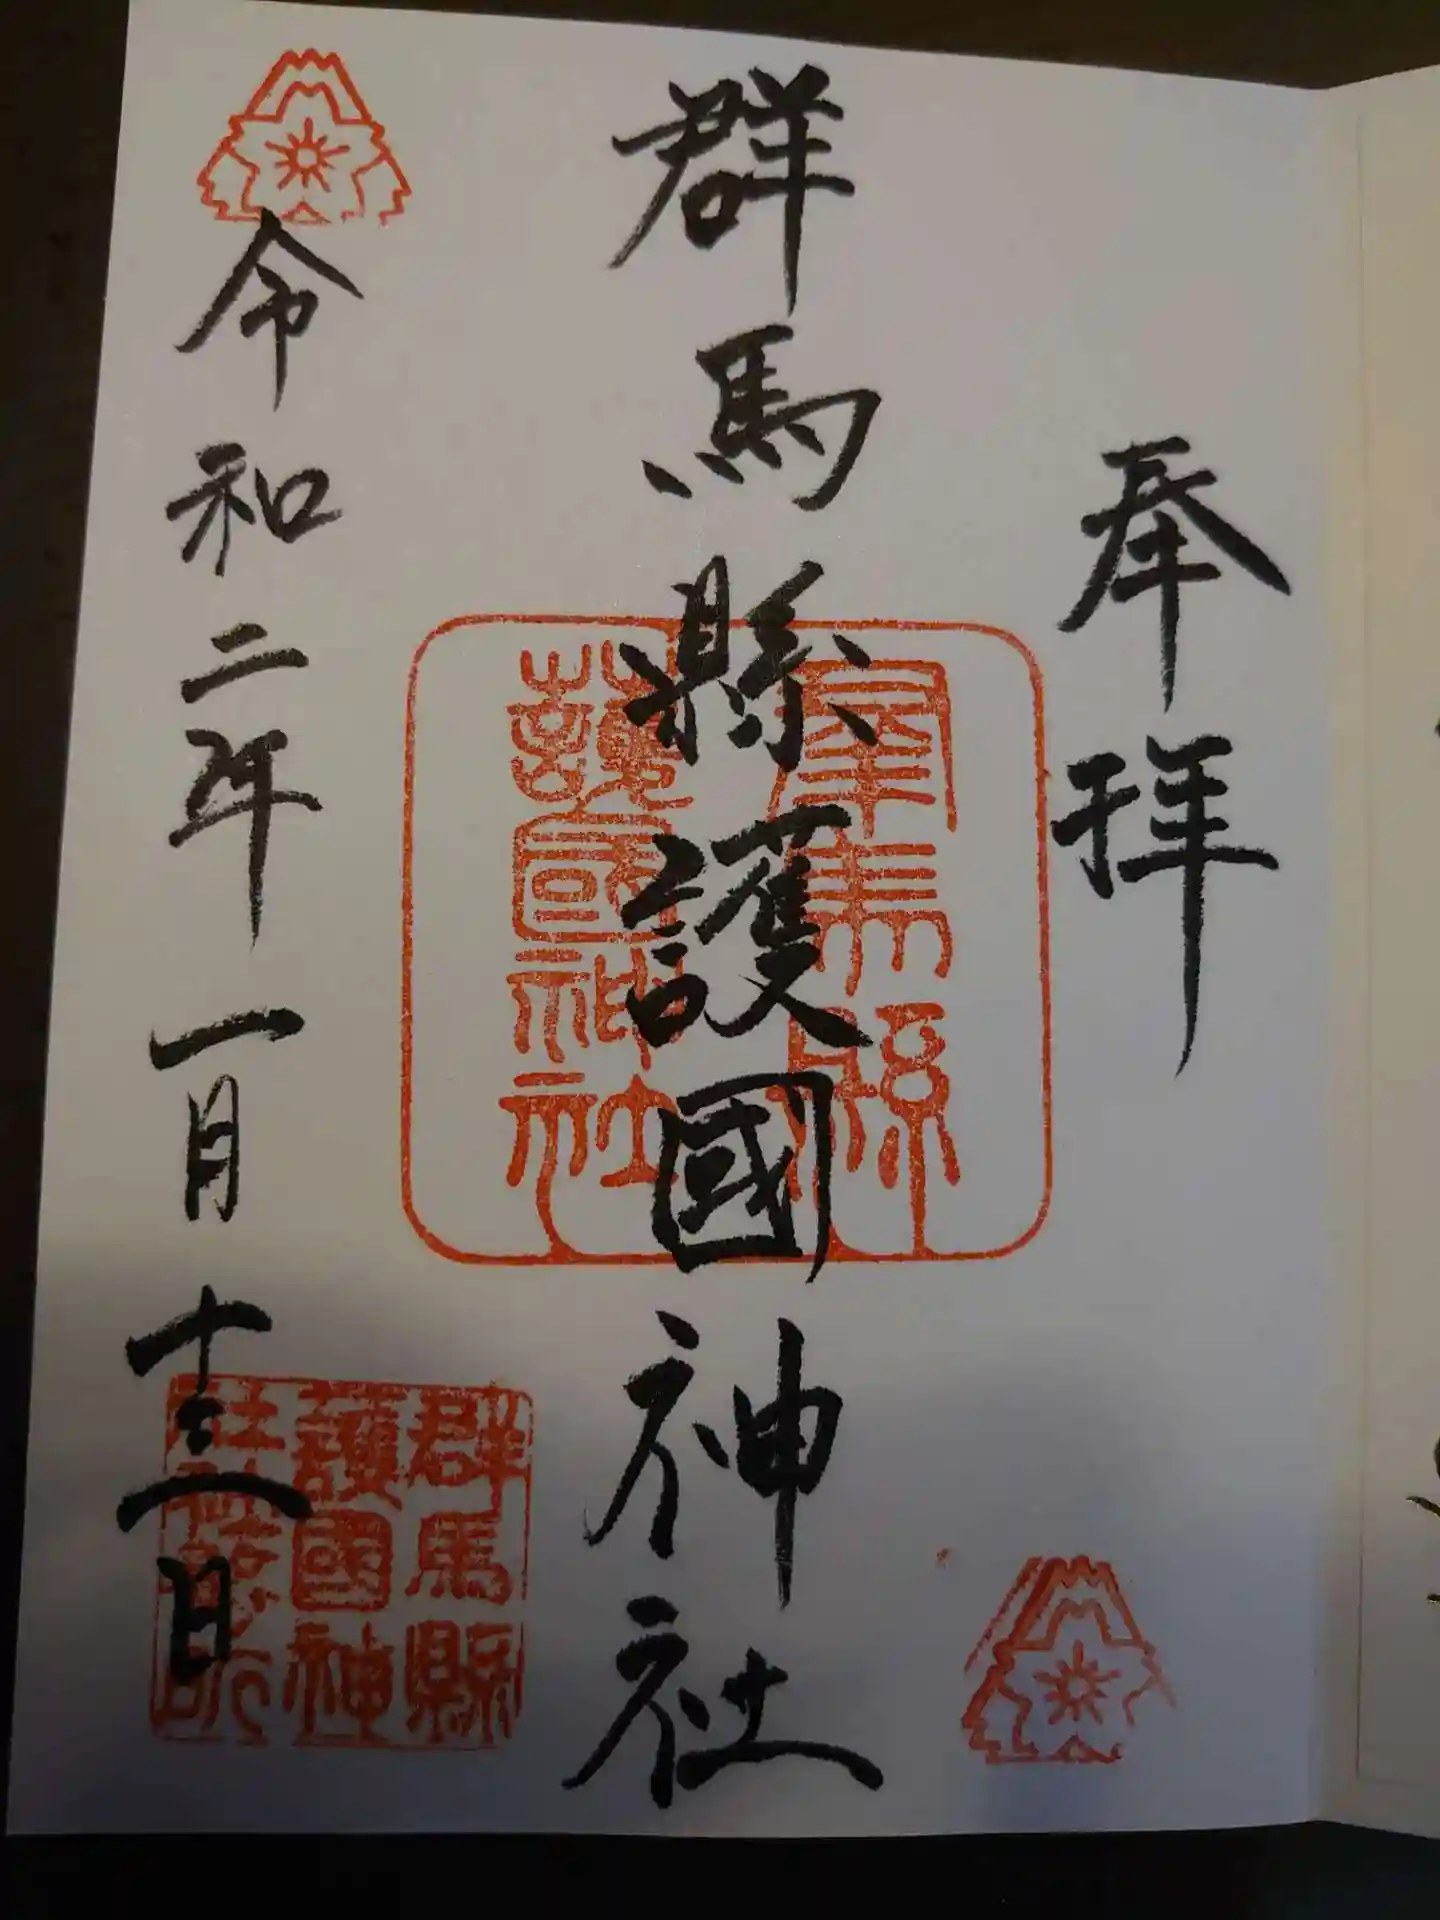 奉拝
群馬縣護國神社
令和二年一月十三日
羣馬縣
護國神社
群馬縣
護國神
社社務所